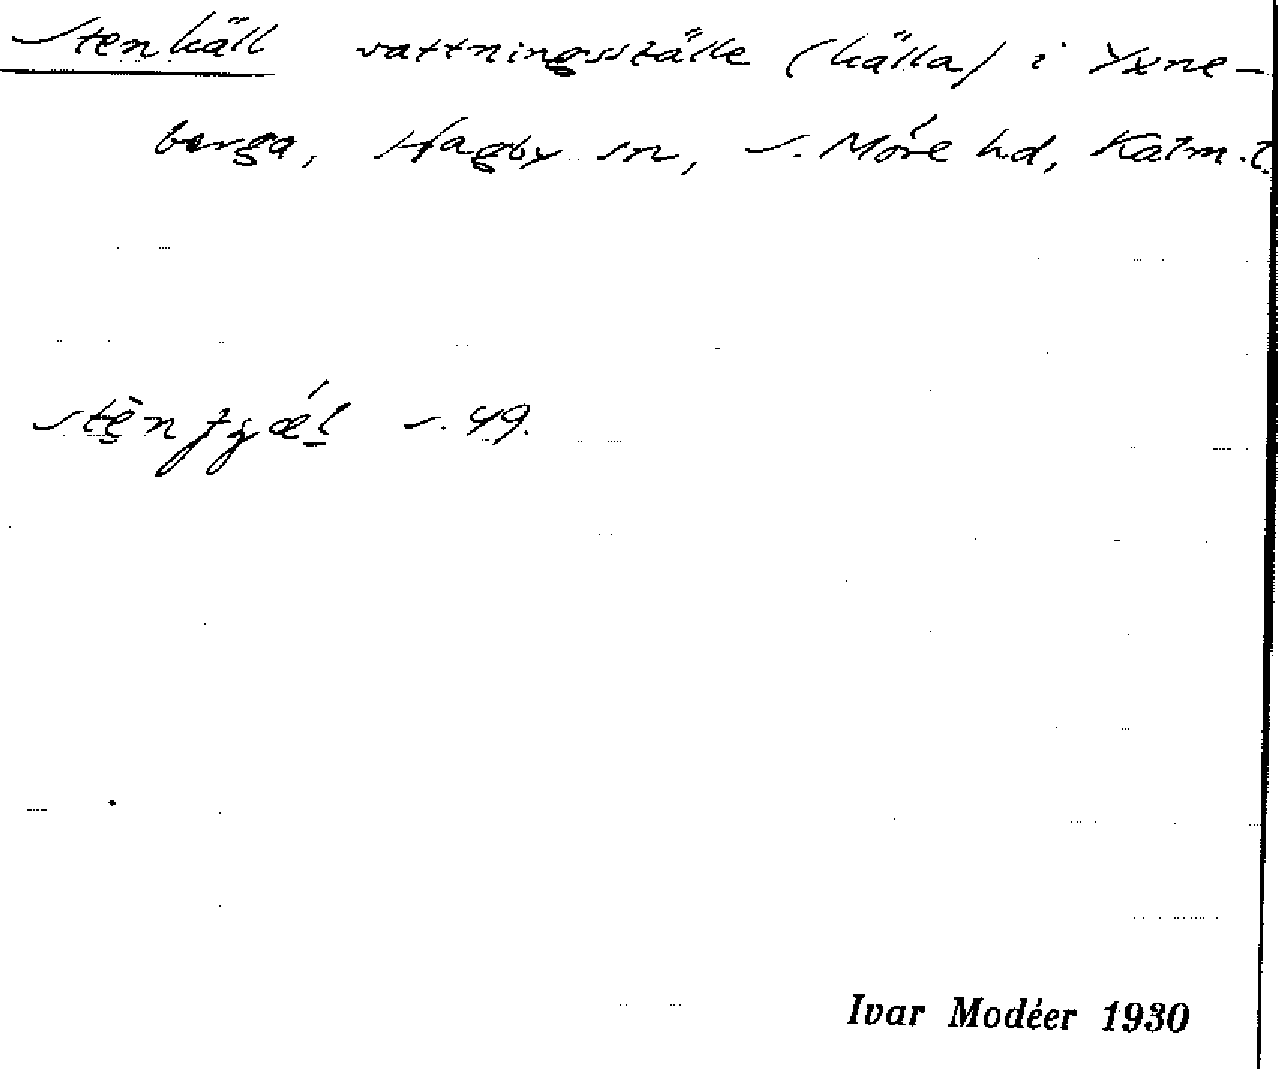 Stenkäll vattningsställe (källa) i Yxne-
berga, Hagby sn, S. Möre hd, Kalm. l.
s. 49.
Ivar Modéer 1930